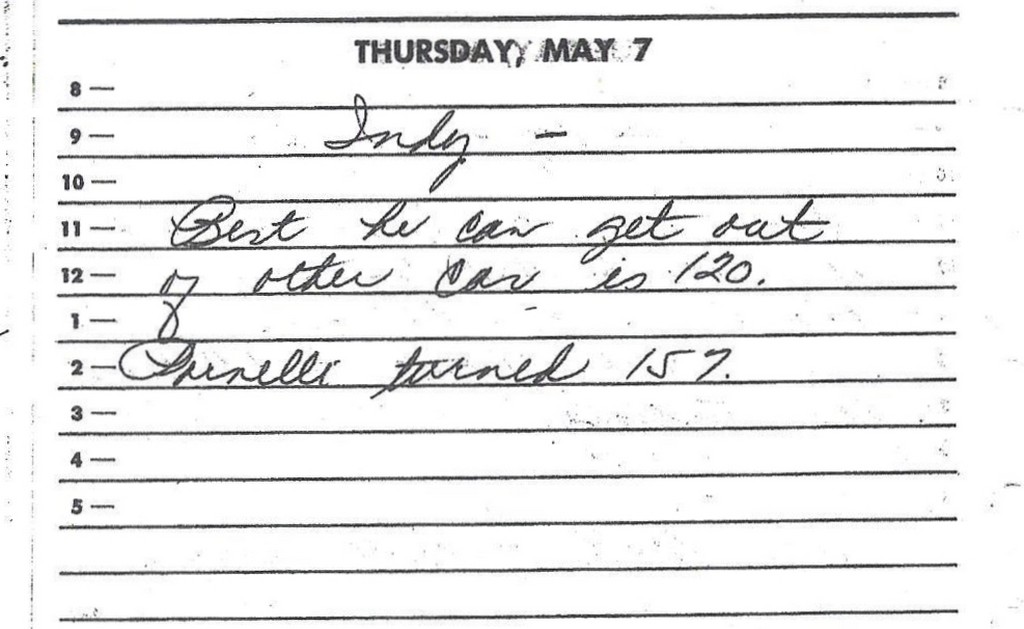 THURSDAY, MAY 7
8 —
9 — Indy —
10 —
11 — Best he can get out
12 — of other car is 120.
1 —
2 — Parnelli turned 157.
3 —
4 —
5 —